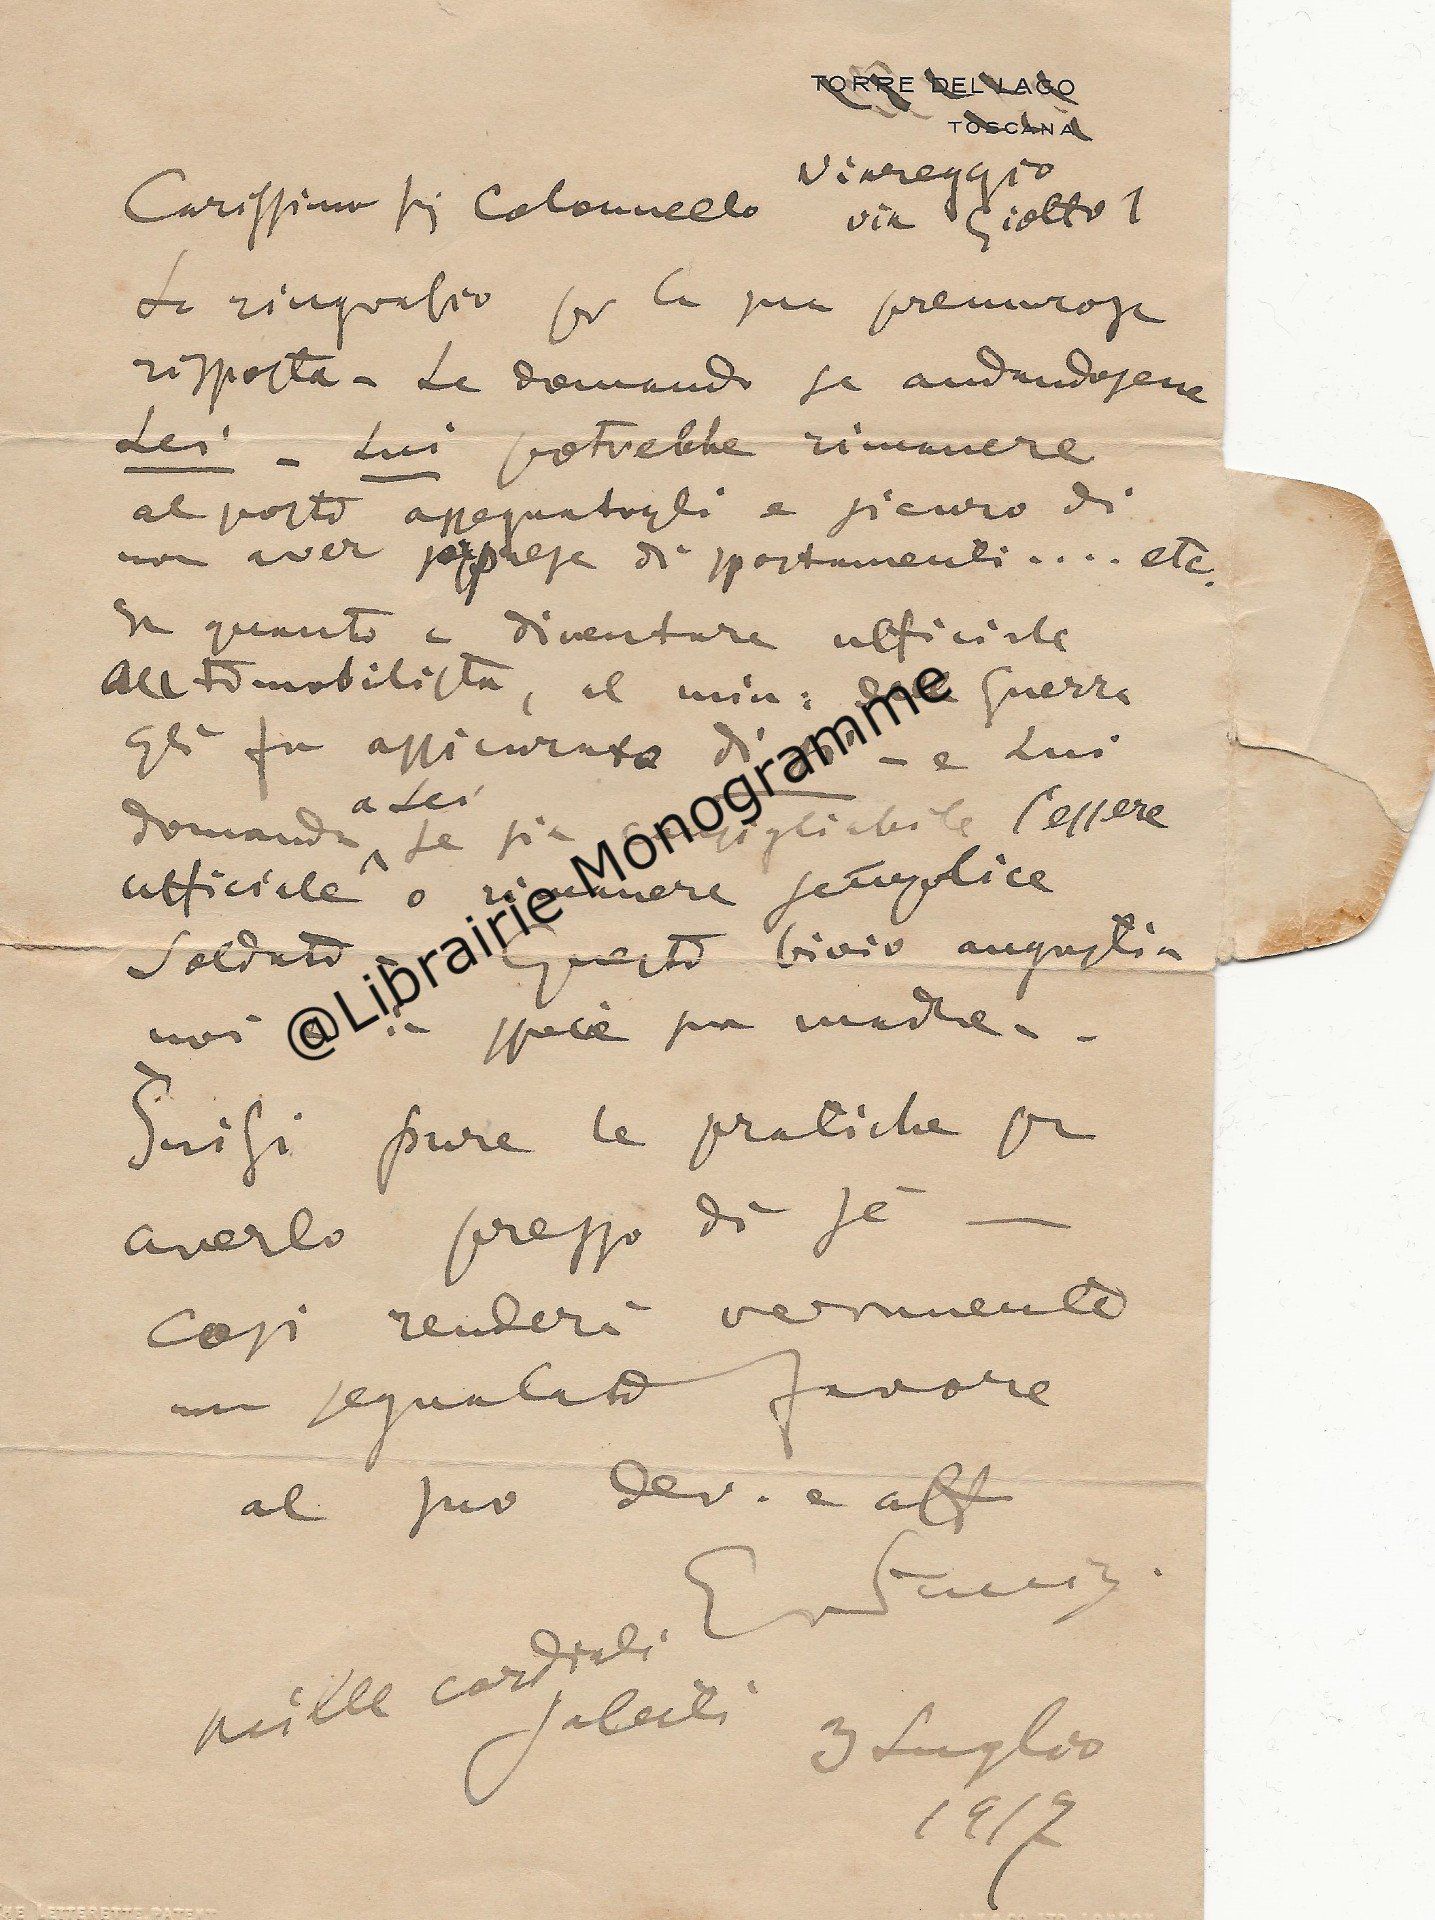 TORRE DEL LAGO
TOSCANA
Viareggio
via Giotto 1
Carissimo Sig Colonnello
La ringrazio per la sua premurosa
risposta - Le domando se andandosene
Lei - Lui potrebbe rimanere
al posto assegnatogli e sicuro di
non aver sorprese di spostamenti.... etc.
In quanto a diventare ufficiale
automobilista, al min: della Guerra
gli fu assicurato di - e Lui
domanda a Lei se sia consigliabile l'essere
ufficiale o rimanere semplice
soldato - Questo bivio angustia
noi e in specie sua madre - -
Inizi pure le pratiche per
averlo presso di sé —
Così renderà veramente
un segnalato favore
al suo dev. e aff
GPuccini
mille cordiali
saluti
3 Luglio
1917
@Librairie Monogramme
THE LETTERETTE PATENT